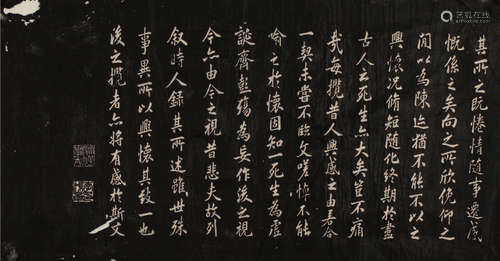 其所之既惓情隨事遷感
慨係之矣向之所欣俛仰之
閒以為陳迹猶不能不以之
興懷況脩短隨化終期於盡
古人云死生亦大矣豈不痛
哉每攬昔人興感之由若合
一契未嘗不臨文嗟悼不能
喻之於懷固知一死生為虛
誕齊彭殤為妄作後之視
今亦由今之視昔悲夫故列
叙時人錄其所述雖世殊
事異所以興懷其致一也
後之攬者亦將有感於斯文